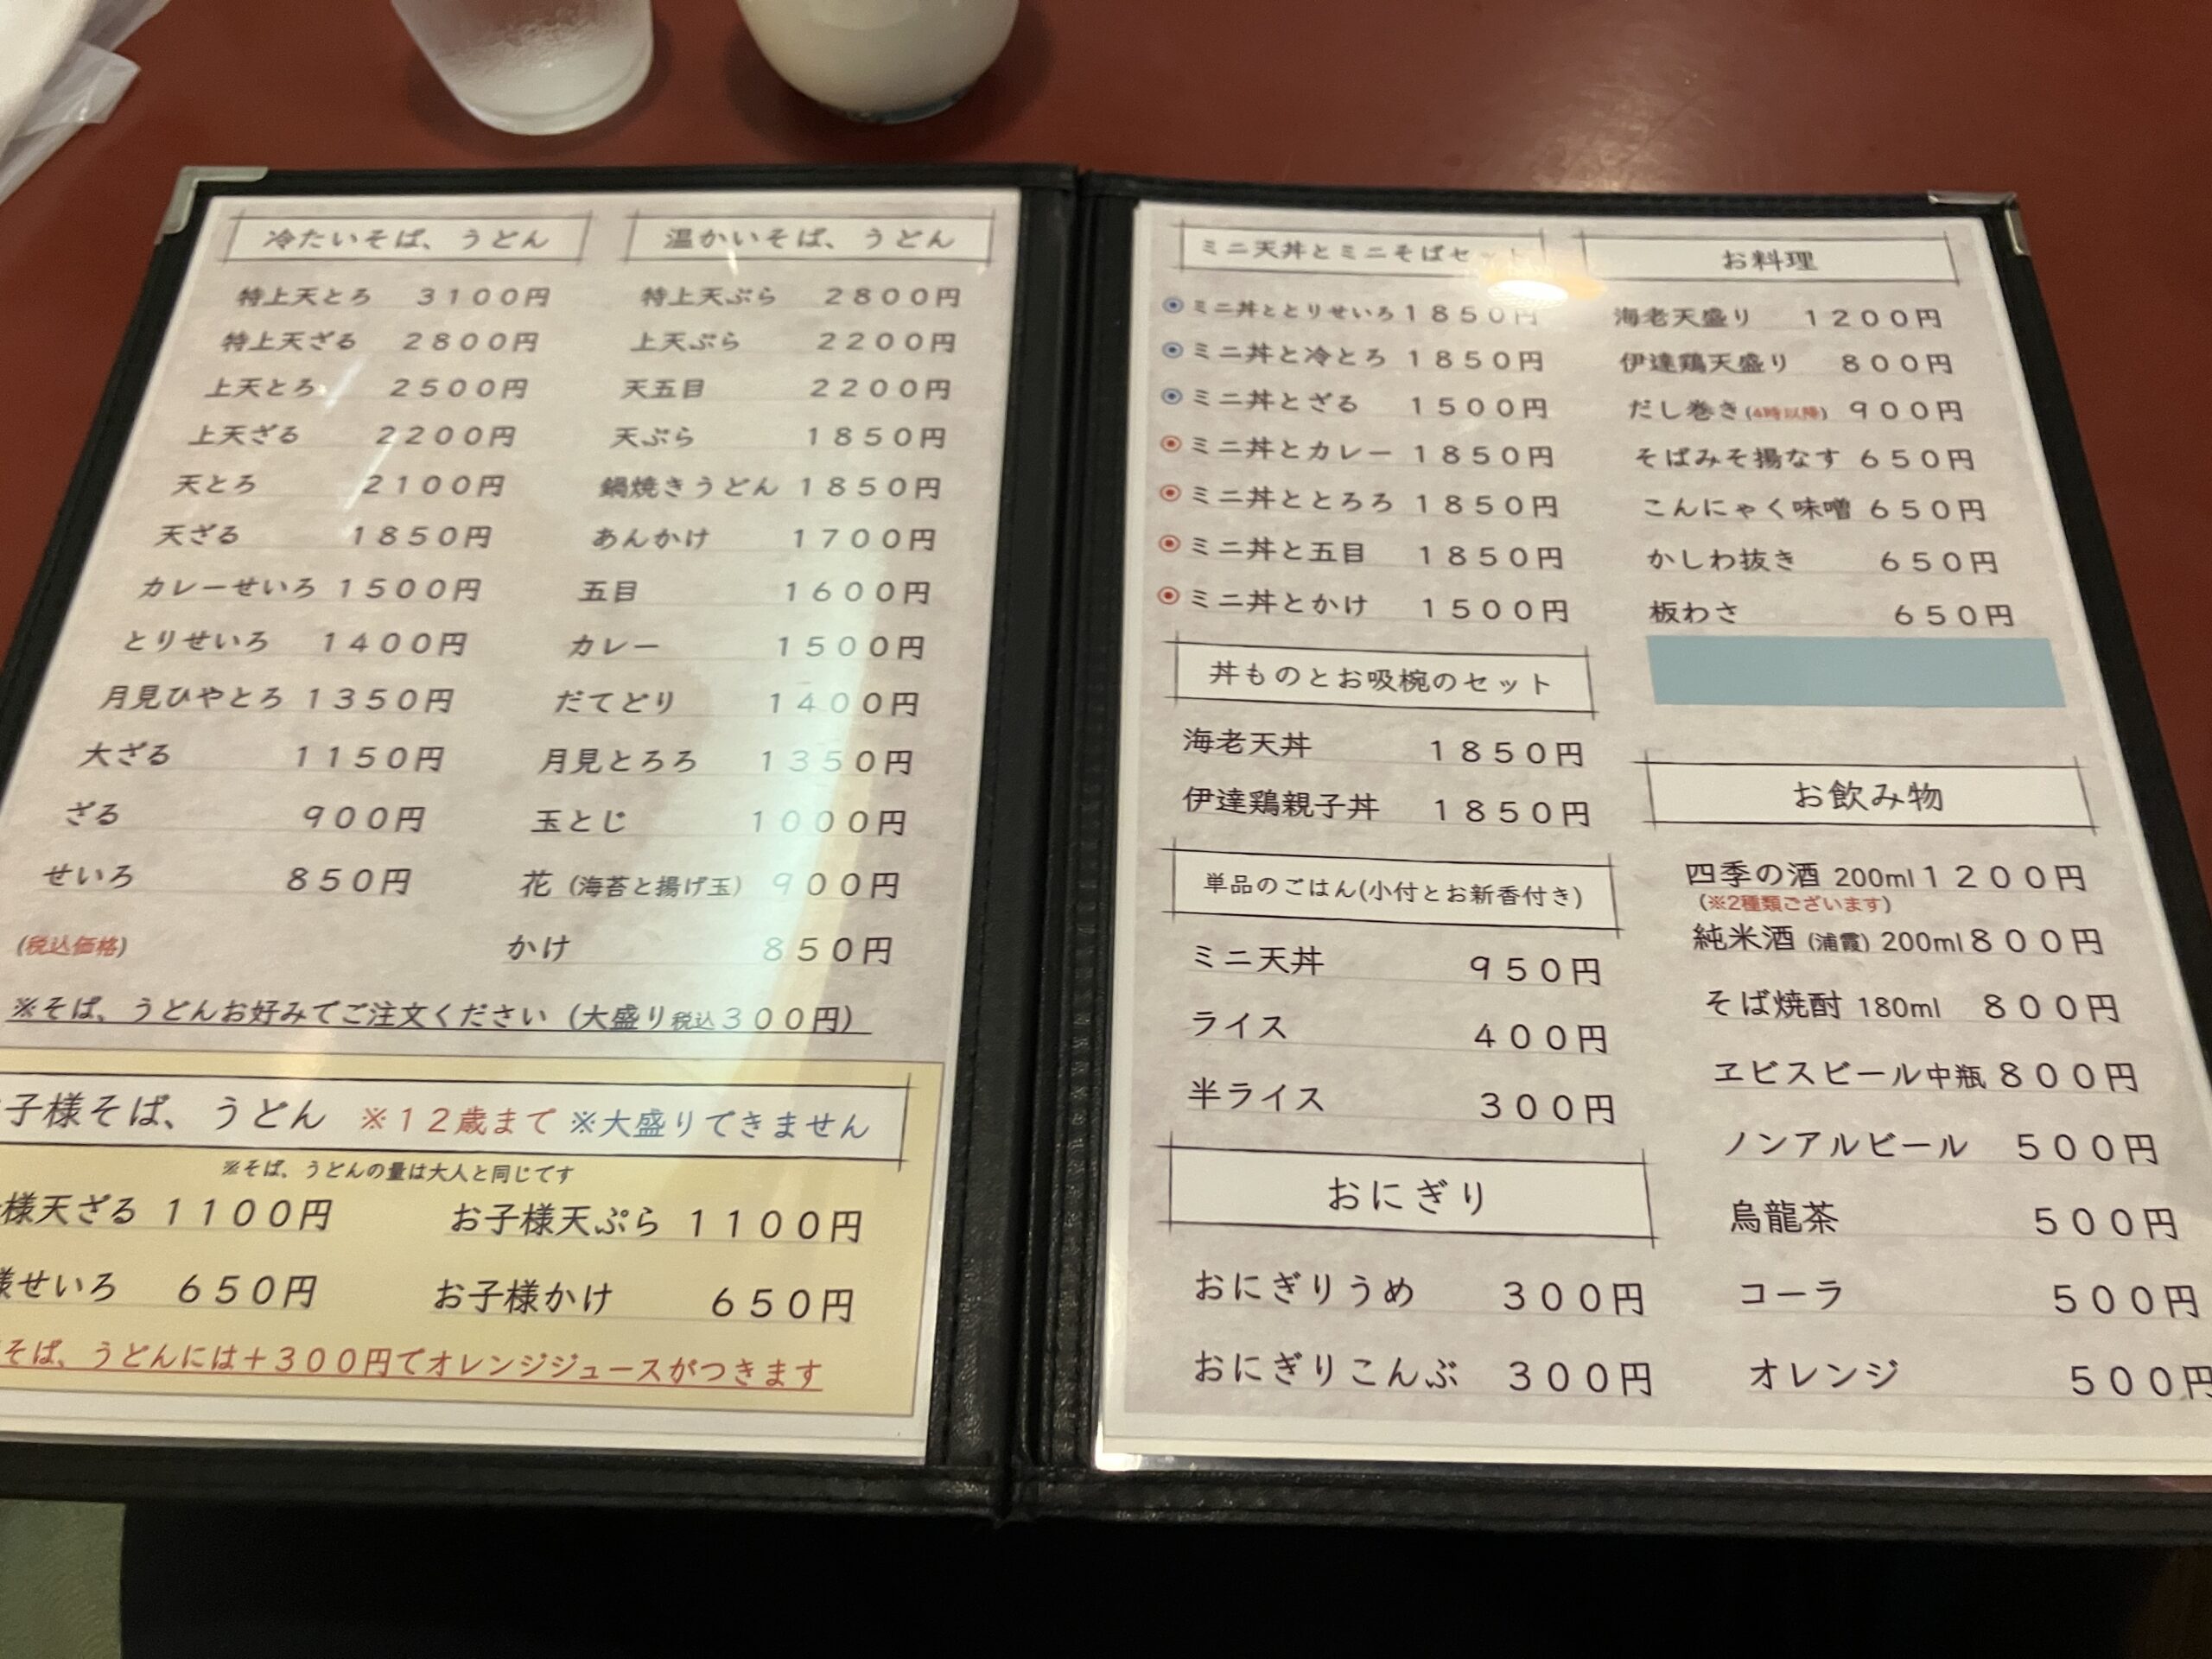 冷たいそば、うどん
特上天とろ 3100円
特上天ざる 2800円
上天とろ 2500円
上天ざる 2200円
天とろ 2100円
天ざる 1850円
カレーせいろ 1500円
とりせいろ 1400円
月見ひやとろ 1350円
大ざる 1150円
ざる 900円
せいろ 850円
(税込価格)
温かいそば、うどん
特上天ぷら 2800円
上天ぷら 2200円
天五目 2200円
天ぷら 1850円
鍋焼きうどん 1850円
あんかけ 1700円
五目 1600円
カレー 1500円
だてどり 1400円
月見とろろ 1350円
玉とじ 1000円
花(海苔と揚げ玉) 900円
かけ 850円
※そば、うどんお好みでご注文ください(大盛り税込300円)
子様そば、うどん ※12歳まで ※大盛りできません
※そば、うどんの量は大人と同じです
様天ざる 1100円 お子様天ぷら 1100円
様せいろ 650円 お子様かけ 650円
そば、うどんには+300円でオレンジジュースがつきます
ミニ天丼とミニそばセット
◉ミニ丼ととりせいろ 1850円
◉ミニ丼と冷とろ 1850円
◉ミニ丼とざる 1500円
◉ミニ丼とカレー 1850円
◉ミニ丼ととろろ 1850円
◉ミニ丼と五目 1850円
◉ミニ丼とかけ 1500円
丼ものとお吸椀のセット
海老天丼 1850円
伊達鶏親子丼 1850円
単品のごはん(小付とお新香付き)
ミニ天丼 950円
ライス 400円
半ライス 300円
おにぎり
おにぎりうめ 300円
おにぎりこんぶ 300円
お料理
海老天盛り 1200円
伊達鶏天盛り 800円
だし巻き(4時以降) 900円
そばみそ揚なす 650円
こんにゃく味噌 650円
かしわ抜き 650円
板わさ 650円
お飲み物
四季の酒 200ml 1200円
(※2種類ございます)
純米酒(浦霞)200ml 800円
そば焼酎 180ml 800円
ヱビスビール中瓶 800円
ノンアルビール 500円
烏龍茶 500円
コーラ 500円
オレンジ 500円